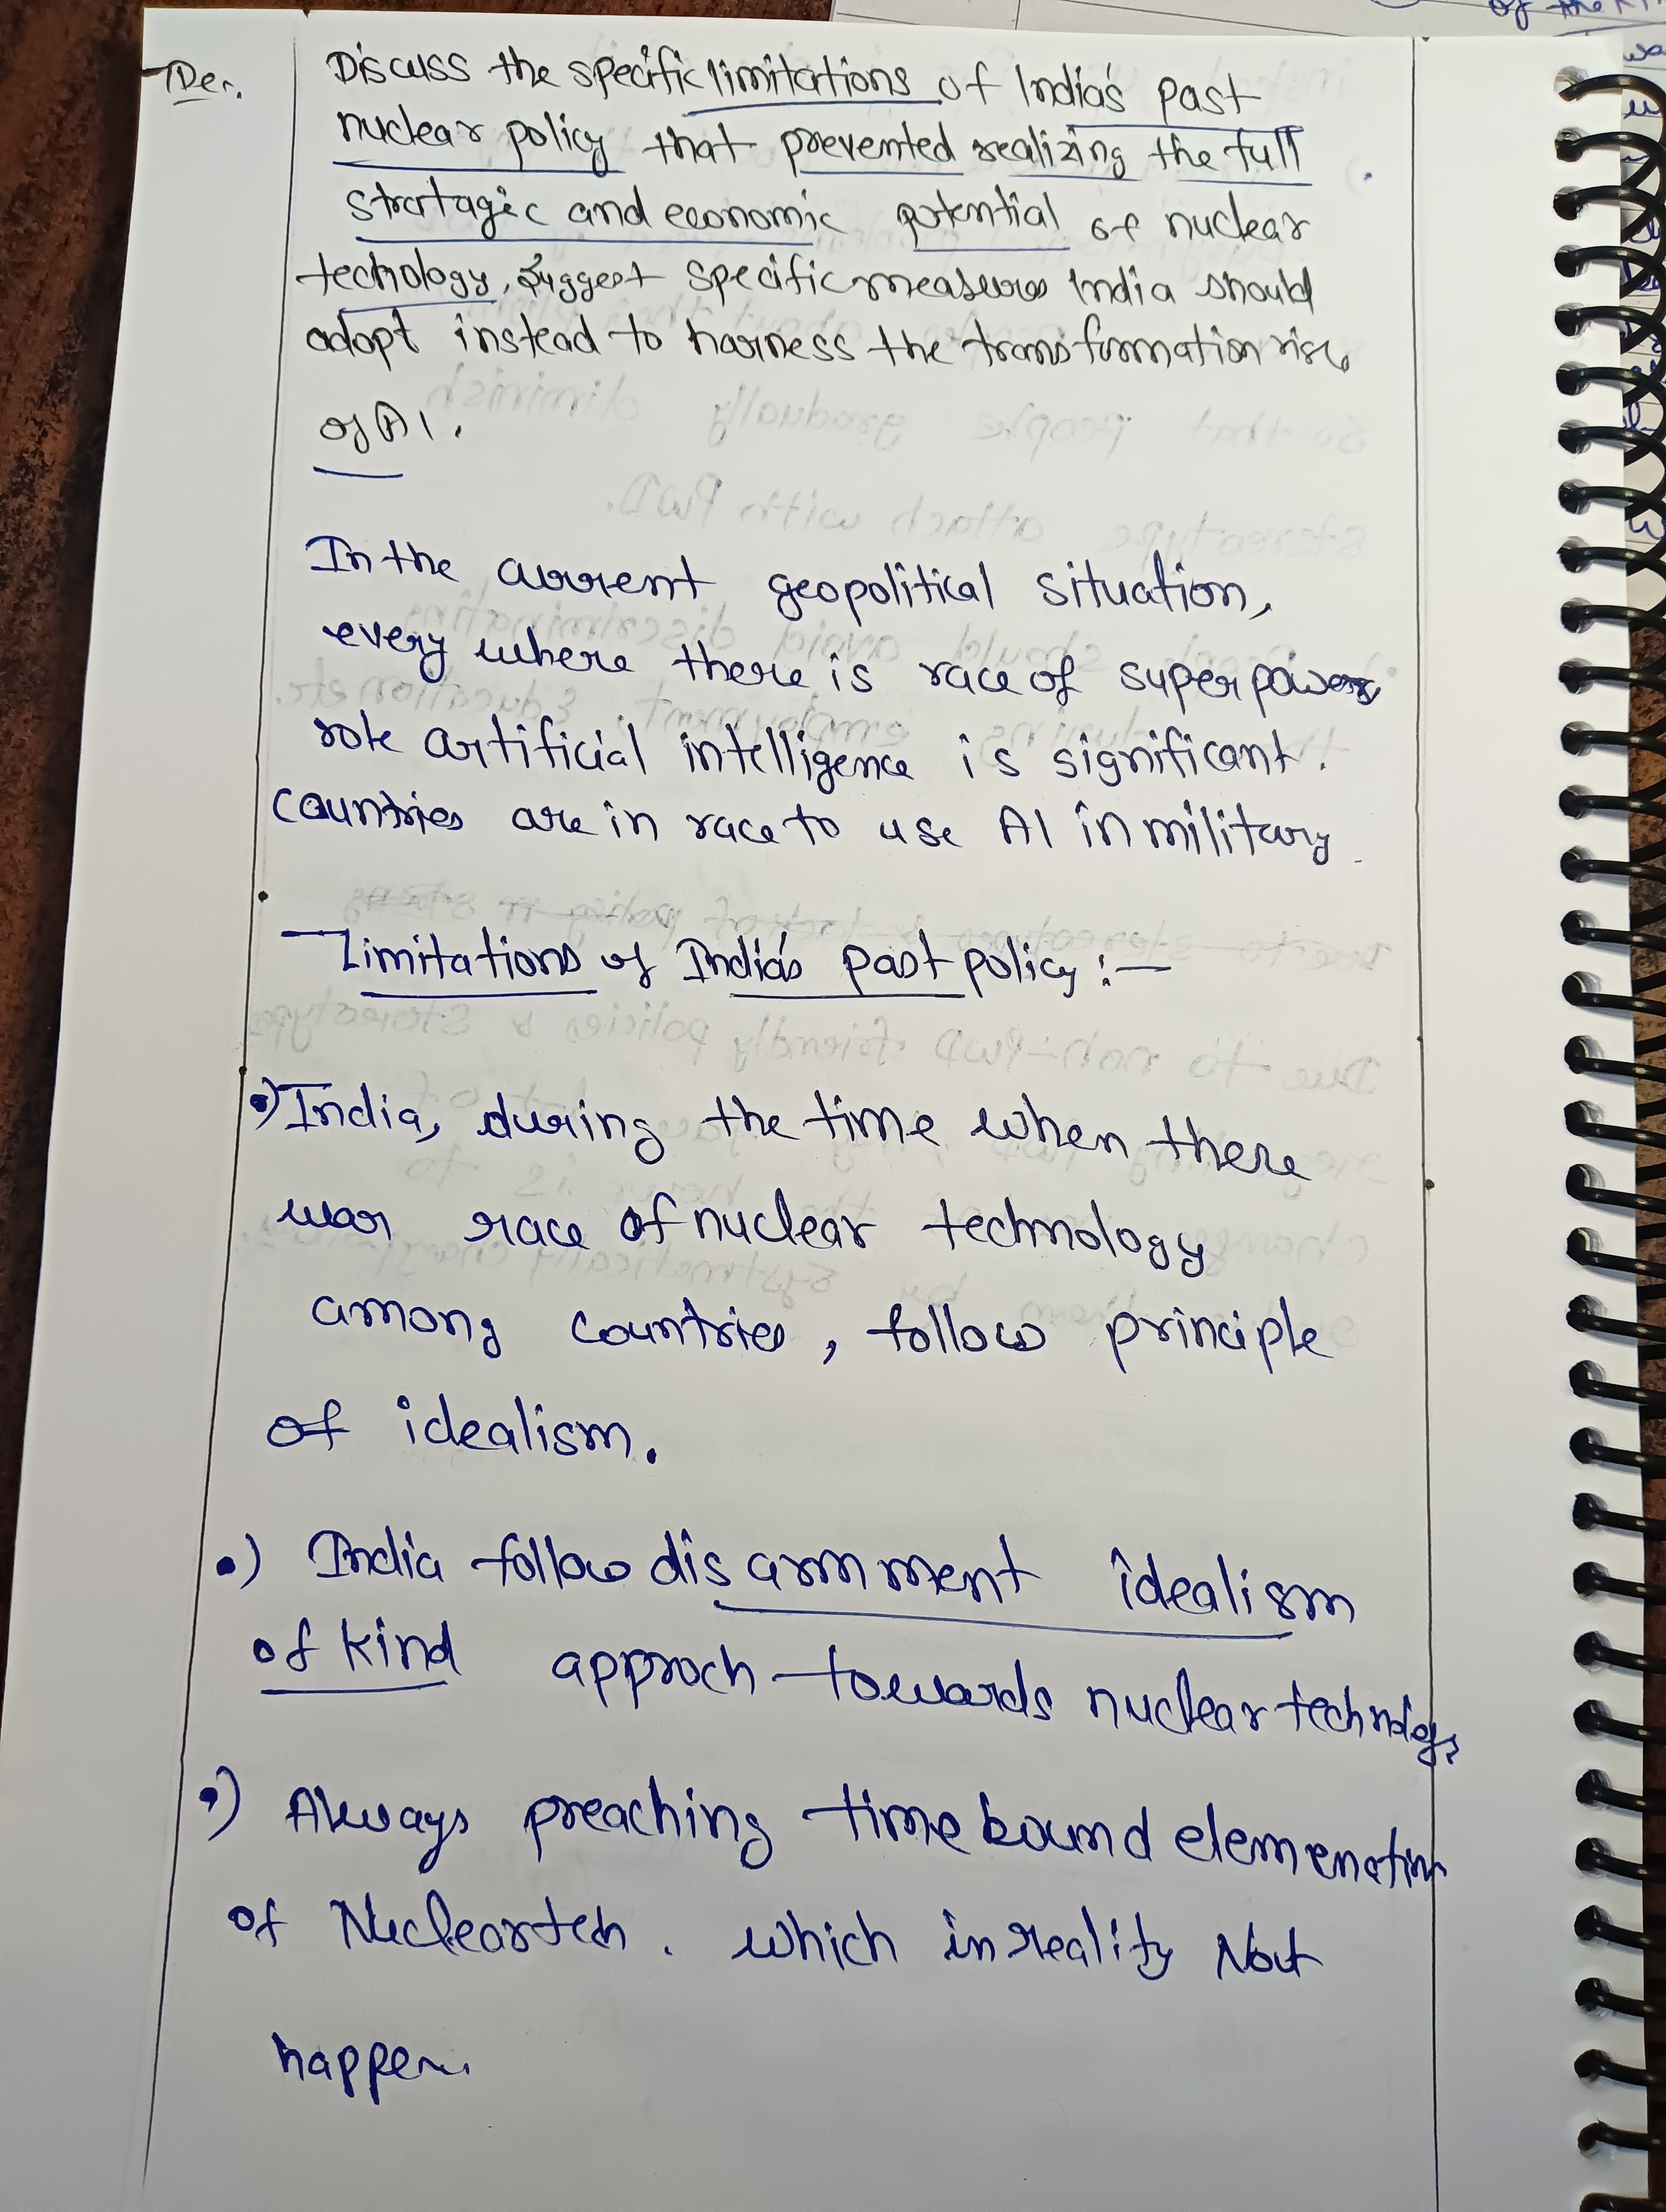 Der.
Discuss the specific limitations of India's past
nuclear policy that prevented realizing the full
stratagic and economic potential of nuclear
techology, suggest specific measures India should
adopt instead to harness the transformation rise
of AI.
In the current geopolitical situation,
every where there is race of superpowers
role artificial intelligence is significant.
Countries are in race to use AI in military.
Limitations of India's past policy :-
•) India, during the time when there
was race of nuclear technology
among countries, follow principle
of idealism.
•) India follow disarmment idealism
of kind approch towards nuclear technology
•) Always preaching time bound elemenation
of Nuclear tech. which in reality Not
happen.